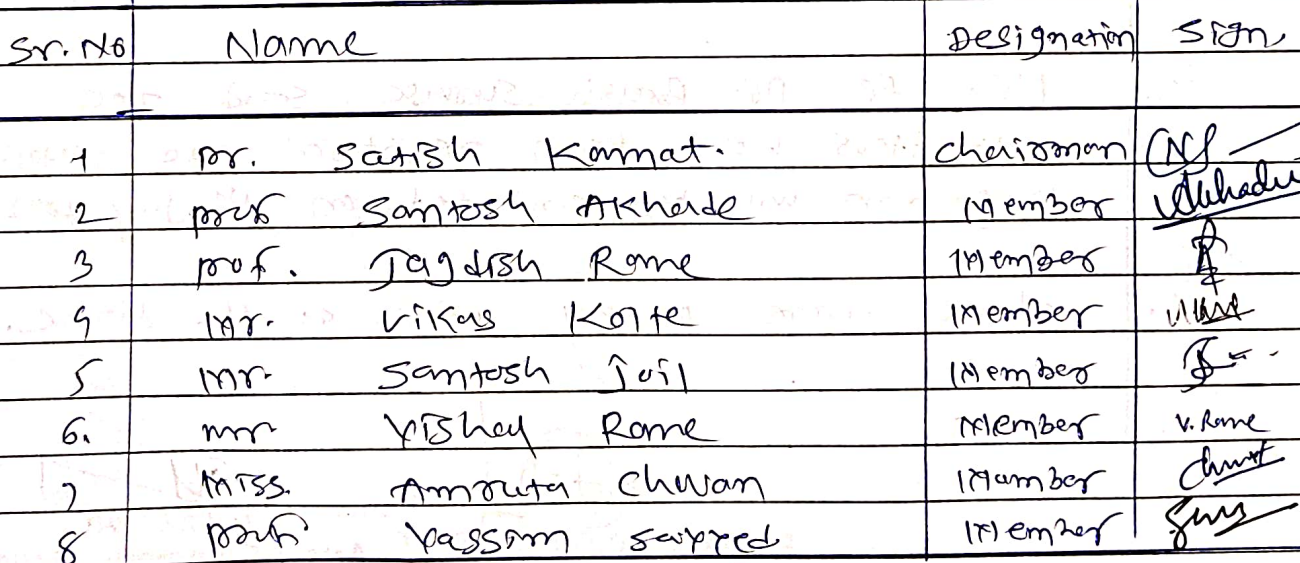 Sr. No Name Designation Sign
1 Dr. Satish Kamat. Chairman
2 prof Santosh Akhade Member
3 prof. Jagdish Rane Member
4 Mr. Vikas Kolte Member
5 mr. Santosh Joil Member
6. mr. Vishay Rane Member V. Rane
7 Miss. Amruta Chvan Member
8 prof Yassim sayyed Member